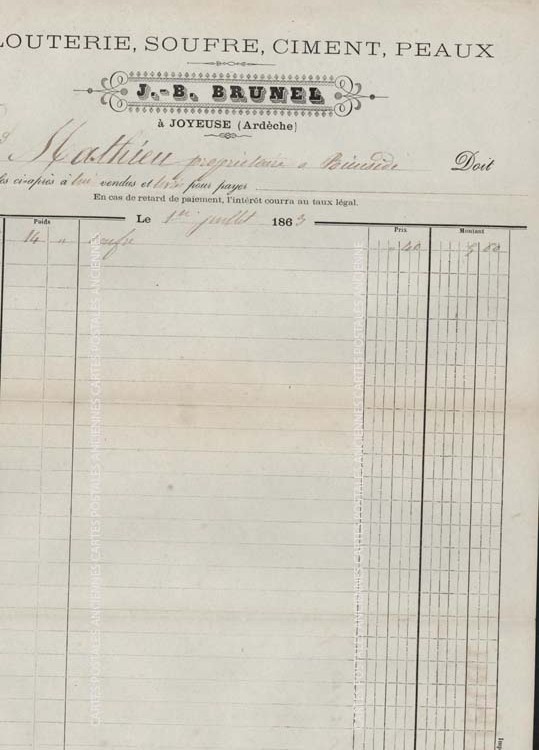 LOUTERIE, SOUFRE, CIMENT, PEAUX
J.-B. BRUNEL
à JOYEUSE (Ardèche)
Mathieu propriétaire a Doit
les ci-après à lui vendus et pour payer
En cas de retard de paiement, l'intérêt courra au taux légal.
Le 1er juillet 1863
Poids Prix Montant
14 " soufre " 40 5 60
CARTES POSTALES ANCIENNES CARTES POSTALES ANCIENNES
CARTES POSTALES ANCIENNES
Imp